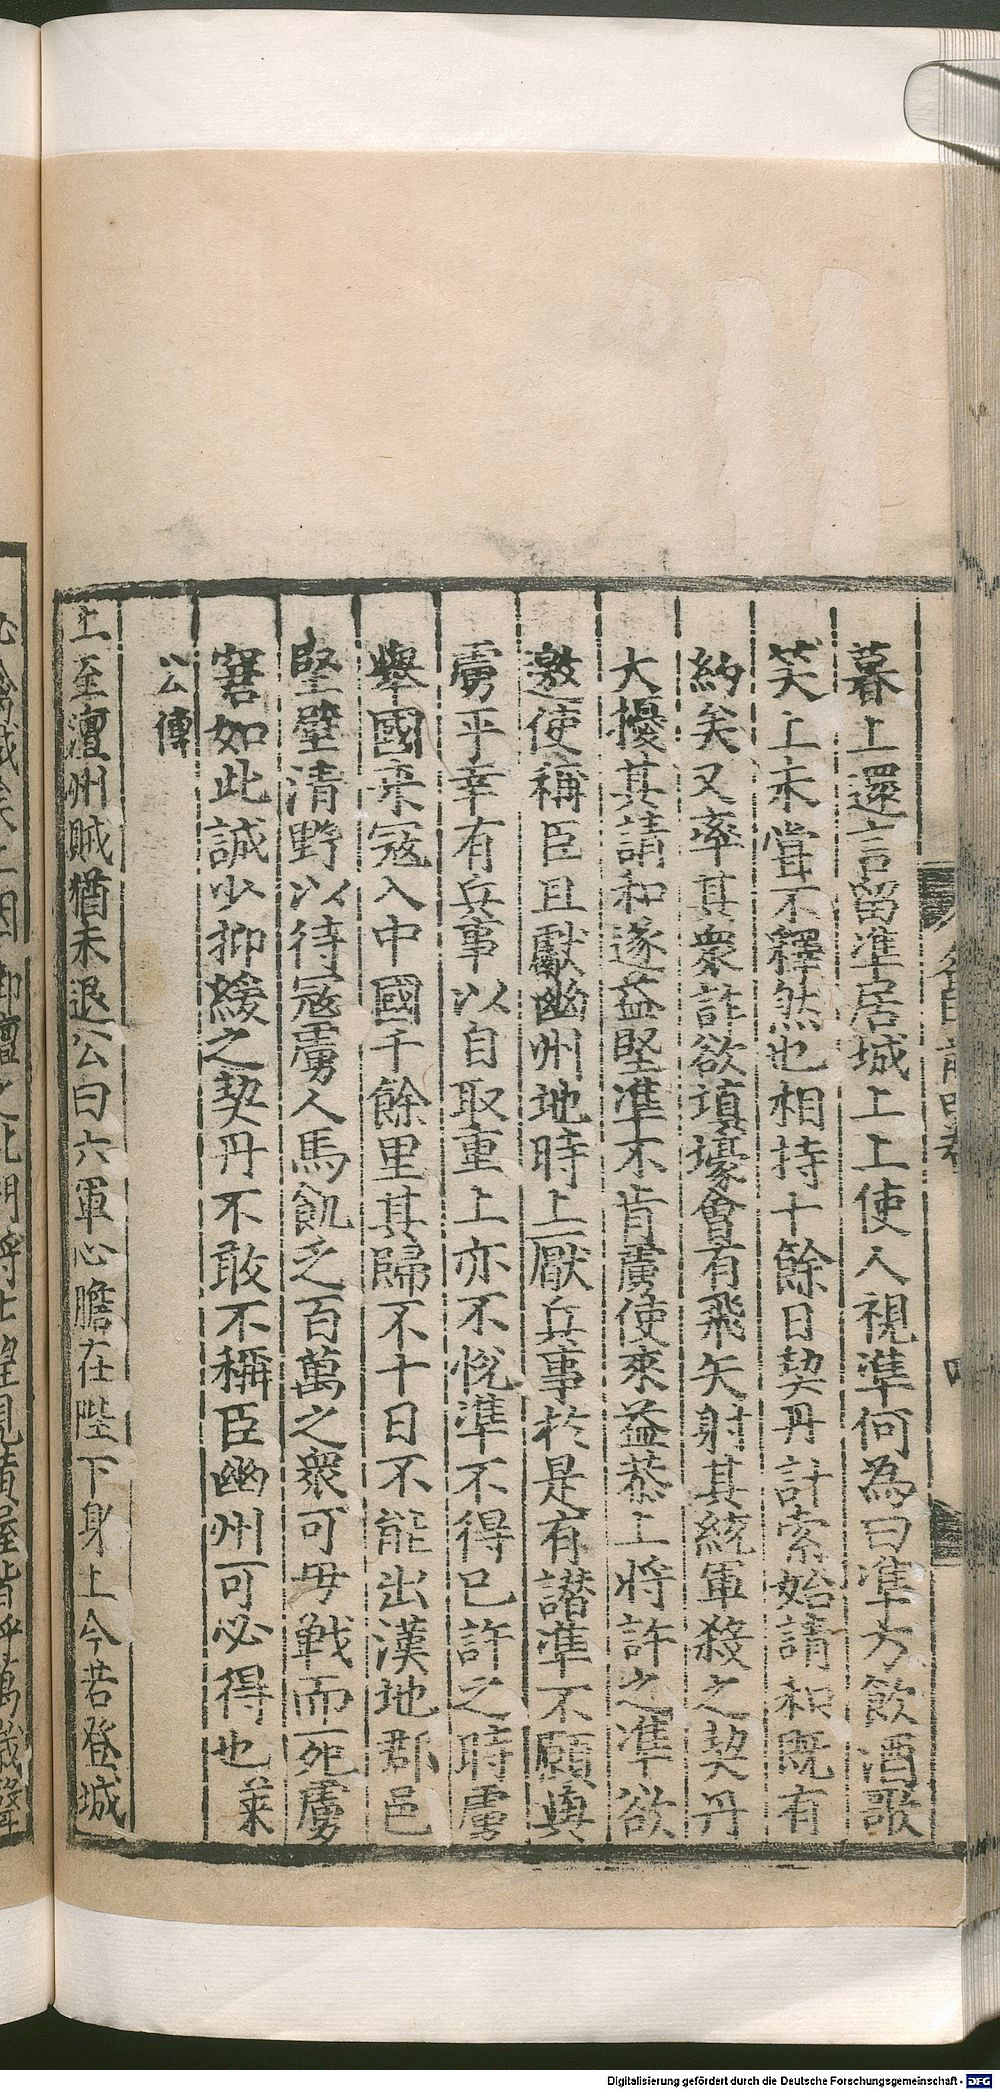 暮上還言留準居城上上使人視準何為曰準方飲酒歌
笑上未甞不釋然也相持十餘日契丹計索始請和既有
納矣又率其衆詐欲填壕會有飛矢射其統軍殺之契丹
大擾其請和遂益堅準不肯虜使來益恭上將許之準欲
邀使稱臣且獻幽州地時上厭兵事於是有譛準不願與
虜平幸有兵事以自取重上亦不悅準不得已許之時虜
舉國來寇入中國千餘里其歸不十日不能出漢地郡邑
堅壁清野以待寇虜人馬飢乏百萬之衆可毋戰而死虜
窘如此誠少抑緩之契丹不敢不稱臣幽州可必得也 萊
公傳
上至澶州賊猶未退公曰六軍心膽在陛下身上今若登城
Digitalisierung gefördert durch die Deutsche Forschungsgemeinschaft - DFG